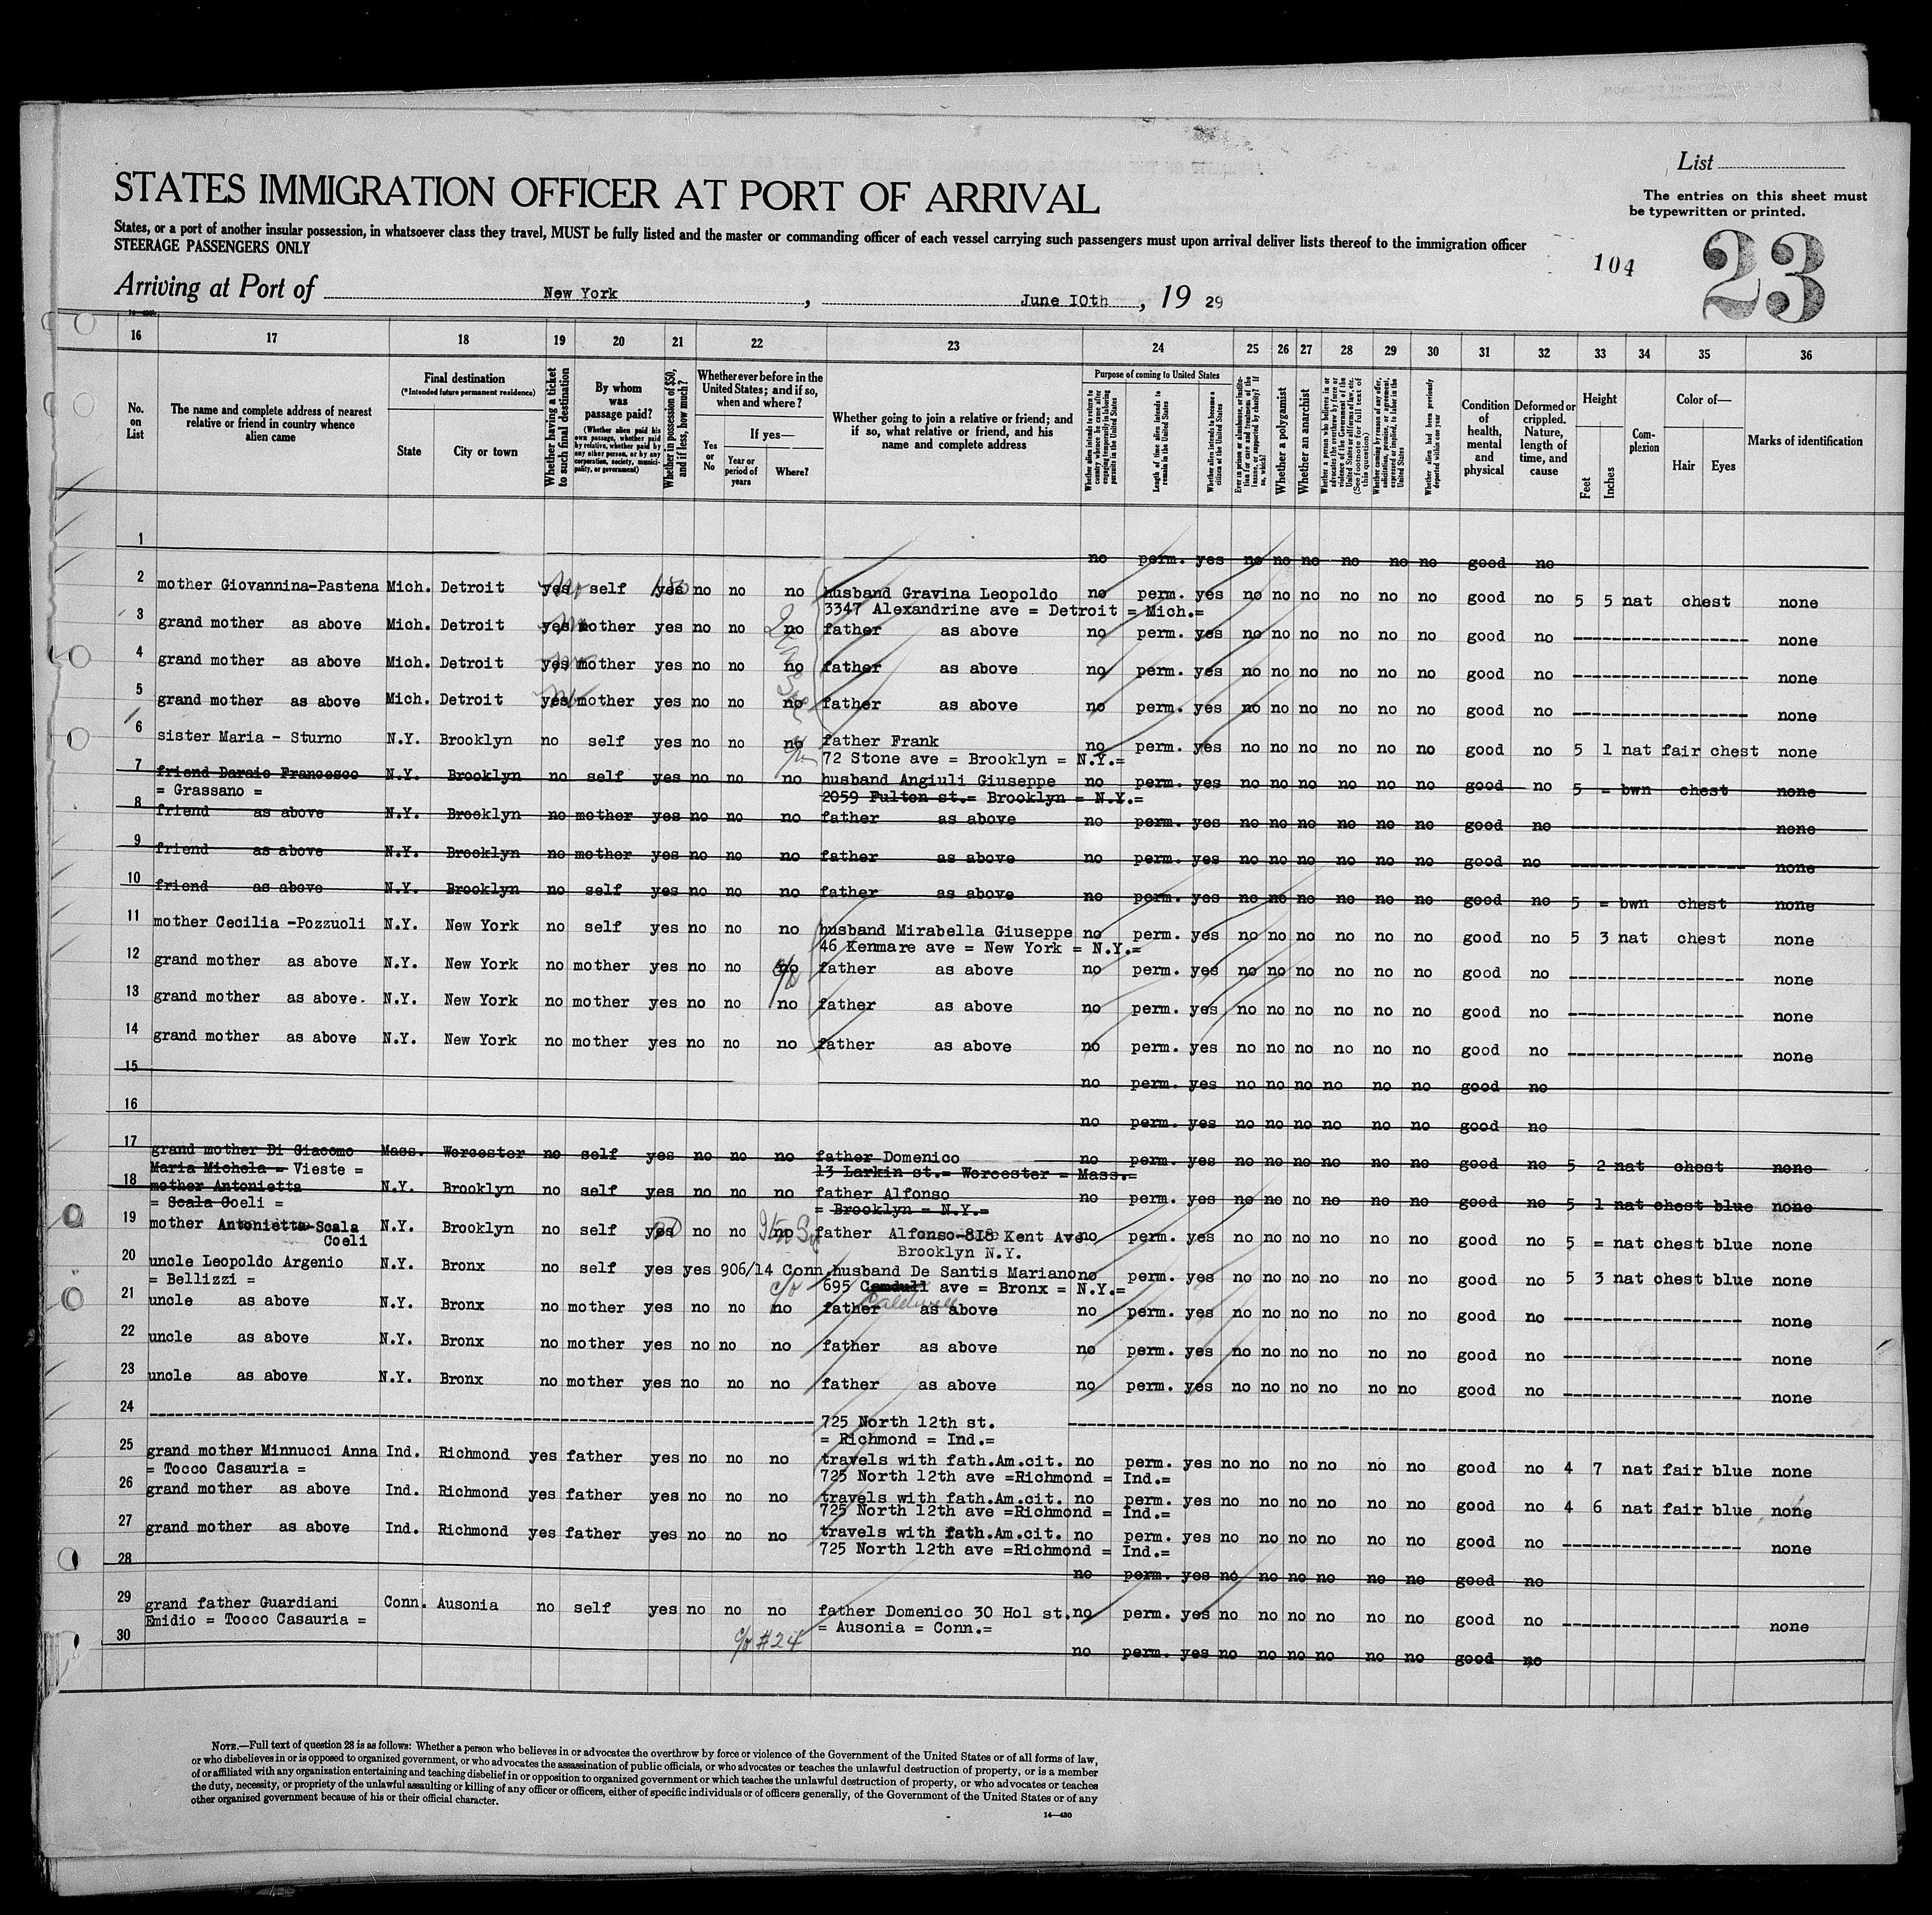 List
STATES IMMIGRATION OFFICER AT PORT OF ARRIVAL
The entries on this sheet must
be typewritten or printed.
States, or a port of another insular possession, in whatsoever class they travel, MUST be fully listed and the master or commanding officer of each vessel carrying such passengers must upon arrival deliver lists thereof to the immigration officer
STEERAGE PASSENGERS ONLY
104
23
Arriving at Port of New York, June 10th, 19 29
16 17 18 19 20 21 22 23 24 25 26 27 28 29 30 31 32 33 34 35 36
No. on List
The name and complete address of nearest relative or friend in country whence alien came
Final destination
(*Intended future permanent residence)
State
City or town
Whether having a ticket to such final destination
By whom was passage paid?
(Whether alien paid his own passage, whether paid by relative, whether paid by any other person, or by any corporation, society, municipality, or government)
Whether in possession of $50, and if less, how much?
Whether ever before in the United States; and if so, when and where?
Yes or No
If yes—
Year or period of years
Where?
Whether going to join a relative or friend; and if so, what relative or friend, and his name and complete address
Purpose of coming to United States
Whether alien intends to return to country whence he came after engaging temporarily in laboring pursuits in the United States
Length of time alien intends to remain in the United States
Whether alien intends to become a citizen of the United States
Ever in prison or almshouse, or institution for care and treatment of the insane, or supported by charity? If so, which?
Whether a polygamist
Whether an anarchist
Whether a person who believes in or advocates the overthrow by force or violence of the Government of the United States or all forms of law, etc. (See footnote for full text of this question)
Whether coming by reason of any offer, solicitation, promise, or agreement, expressed or implied, to labor in the United States
Whether alien had been previously deported within one year
Condition of health, mental and physical
Deformed or crippled. Nature, length of time, and cause
Height
Feet
Inches
Complexion
Color of—
Hair
Eyes
Marks of identification
1 no perm. yes no no no no no no good no
2 mother Giovannina-Pastena Mich. Detroit yes self yes no no no husband Gravina Leopoldo no perm. yes no no no no no no good no 5 5 nat chest none
3347 Alexandrine ave = Detroit = Mich.=
3 grand mother as above Mich. Detroit yes mother yes no no no father as above no perm. yes no no no no no no good no ------------------- none
4 grand mother as above Mich. Detroit yes mother yes no no no father as above no perm. yes no no no no no no good no ------------------- none
5 grand mother as above Mich. Detroit yes mother yes no no no father as above no perm. yes no no no no no no good no ------------------- none
6 sister Maria - Sturno N.Y. Brooklyn no self yes no no no father Frank no perm. yes no no no no no no good no 5 1 nat fair chest none
72 Stone ave = Brooklyn = N.Y.=
7 friend Daraio Francesco N.Y. Brooklyn no self yes no no no husband Angiuli Giuseppe no perm. yes no no no no no no good no 5 = bwn chest none
= Grassano = 2059 Fulton st.= Brooklyn = N.Y.=
8 friend as above N.Y. Brooklyn no mother yes no no no father as above no perm. yes no no no no no no good no ------------------- none
9 friend as above N.Y. Brooklyn no mother yes no no no father as above no perm. yes no no no no no no good no ------------------- none
10 friend as above N.Y. Brooklyn no self yes no no no father as above no perm. yes no no no no no no good no 5 = bwn chest none
11 mother Cecilia -Pozzuoli N.Y. New York no self yes no no no husband Mirabella Giuseppe no perm. yes no no no no no no good no 5 3 nat chest none
46 Kenmare ave = New York = N.Y.=
12 grand mother as above N.Y. New York no mother yes no no no father as above no perm. yes no no no no no no good no ------------------- none
13 grand mother as above. N.Y. New York no mother yes no no no father as above no perm. yes no no no no no no good no ------------------- none
14 grand mother as above N.Y. New York no mother yes no no no father as above no perm. yes no no no no no no good no ------------------- none
15 no perm. yes no no no no no no good no
16 no perm. yes no no no no no no good no
17 grand mother Di Giacomo Mass. Worcester no self yes no no no father Domenico no perm. yes no no no no no no good no 5 2 nat chest none
Maria Michela = Vieste = 13 Larkin st.= Worcester = Mass.=
18 mother Antonietta N.Y. Brooklyn no self yes no no no father Alfonso no perm. yes no no no no no no good no 5 1 nat chest blue none
= Scala Coeli = = Brooklyn = N.Y.=
19 mother Antonietta-Scala N.Y. Brooklyn no self yes no no no father Alfonso-818 Kent Ave no perm. yes no no no no no no good no 5 = nat chest blue none
Coeli Brooklyn N.Y.
20 uncle Leopoldo Argenio N.Y. Bronx no self yes yes 906/14 Conn. husband De Santis Mariano no perm. yes no no no no no no good no 5 3 nat chest blue none
= Bellizzi = c/o 695 ave = Bronx = N.Y.=
Caldwell
21 uncle as above N.Y. Bronx no mother yes no no no father as above no perm. yes no no no no no no good no ------------------- none
22 uncle as above N.Y. Bronx no mother yes no no no father as above no perm. yes no no no no no no good no ------------------- none
23 uncle as above N.Y. Bronx no mother yes no no no father as above no perm. yes no no no no no no good no ------------------- none
24 725 North 12th st.
= Richmond = Ind.=
25 grand mother Minnucci Anna Ind. Richmond yes father yes no no no travels with fath.Am.cit. no perm. yes no no no no no no good no 4 7 nat fair blue none
= Tocco Casauria = 725 North 12th ave =Richmond = Ind.=
26 grand mother as above Ind. Richmond yes father yes no no no travels with fath.Am.cit. no perm. yes no no no no no no good no 4 6 nat fair blue none
725 North 12th ave =Richmond = Ind.=
27 grand mother as above Ind. Richmond yes father yes no no no travels with fath.Am.cit. no perm. yes no no no no no no good no ------------------- none
725 North 12th ave =Richmond = Ind.=
28 no perm. yes no no no no no no good no
29 grand father Guardiani Conn. Ausonia no self yes no no no father Domenico 30 Hol st. no perm. yes no no no no no no good no ------------------- none
Emidio = Tocco Casauria = = Ausonia = Conn.=
c/o #24
30 no perm. yes no no no no no no good no
NOTE.—Full text of question 28 is as follows: Whether a person who believes in or advocates the overthrow by force or violence of the Government of the United States or of all forms of law,
or who disbelieves in or is opposed to organized government, or who advocates the assassination of public officials, or who advocates or teaches the unlawful destruction of property, or is a member
of or affiliated with any organization entertaining and teaching disbelief in or opposition to organized government or which teaches the unlawful destruction of property, or who advocates or teaches
the duty, necessity, or propriety of the unlawful assaulting or killing of any officer or officers, either of specific individuals or of officers generally, of the Government of the United States or of any
other organized government because of his or their official character.
14—430